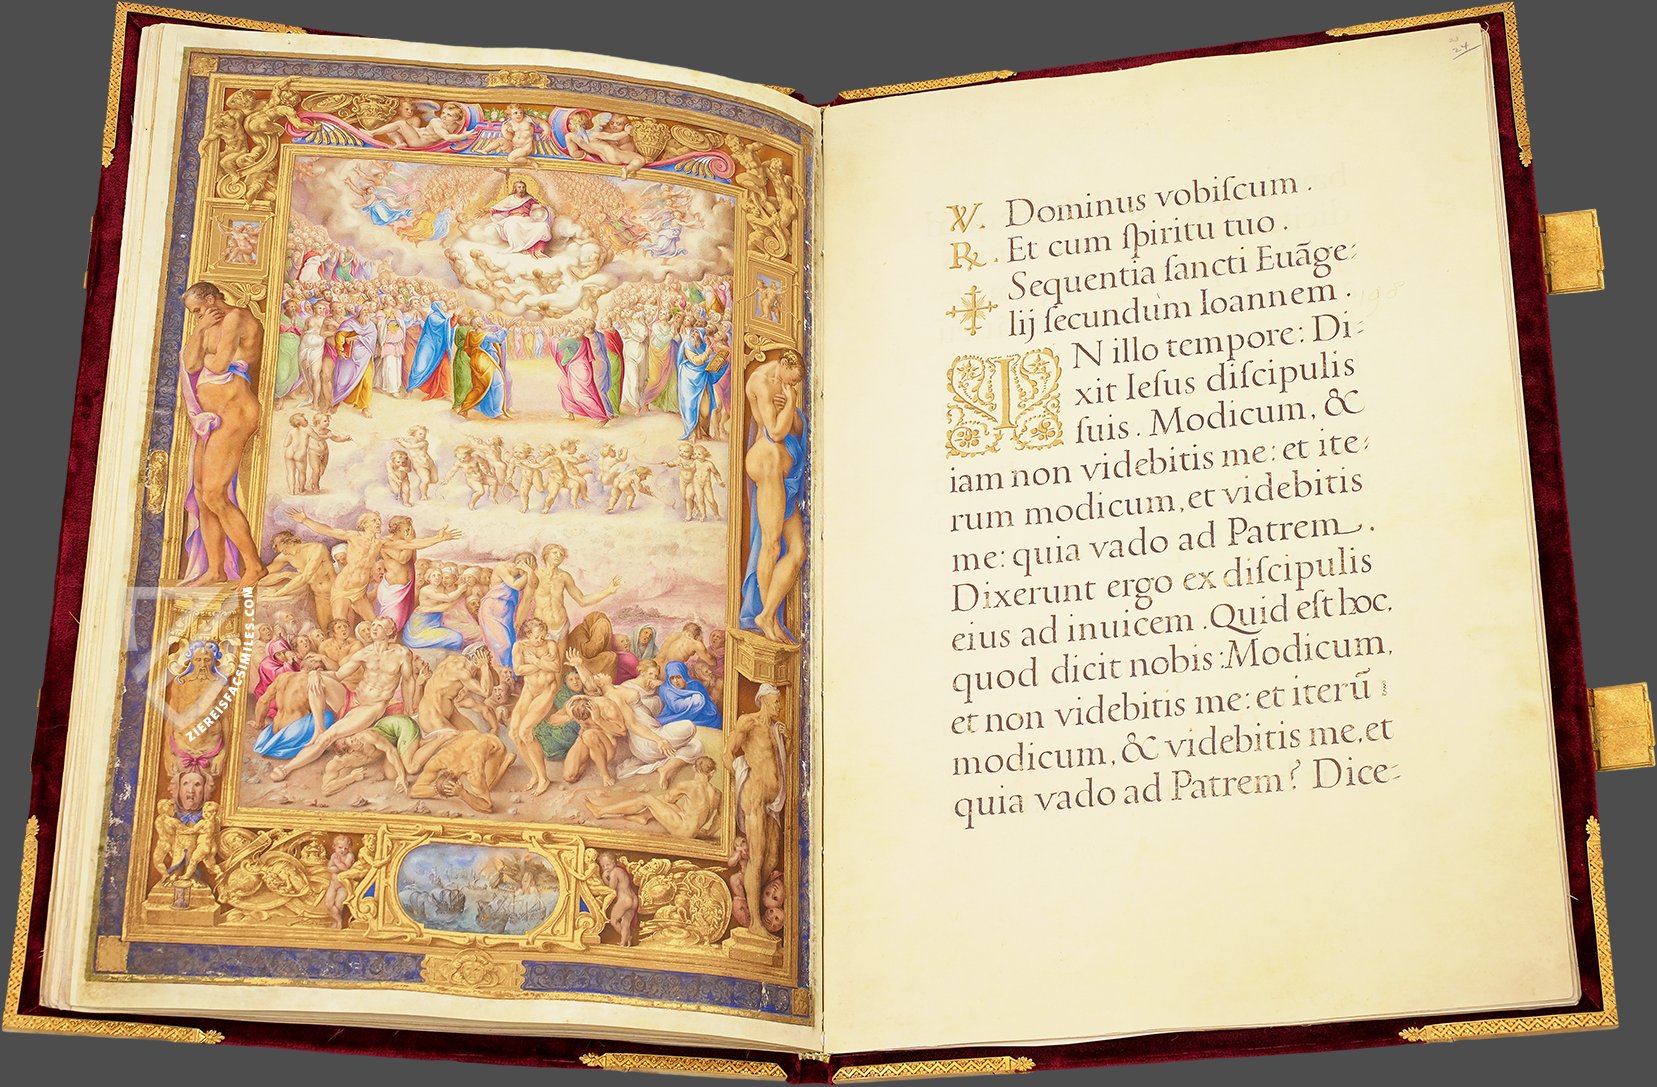 ZIEREISFACSIMILES.COM
24
V. Dominus vobiſcum .
R . Et cum ſpiritu tuo .
Sequentia ſancti Euãge⸗
✠ lij ſecundùm Ioannem .
IN illo tempore: Di⸗
xit Ieſus diſcipulis
ſuis . Modicum, &
iam non videbitis me: et ite⸗
rum modicum, et videbitis
me: quia vado ad Patrem .
Dixerunt ergo ex diſcipulis
eius ad inuicem . Quid eſt hoc,
quod dicit nobis: Modicum,
et non videbitis me: et iterũ
modicum, & videbitis me, et
quia vado ad Patrem? Dice⸗